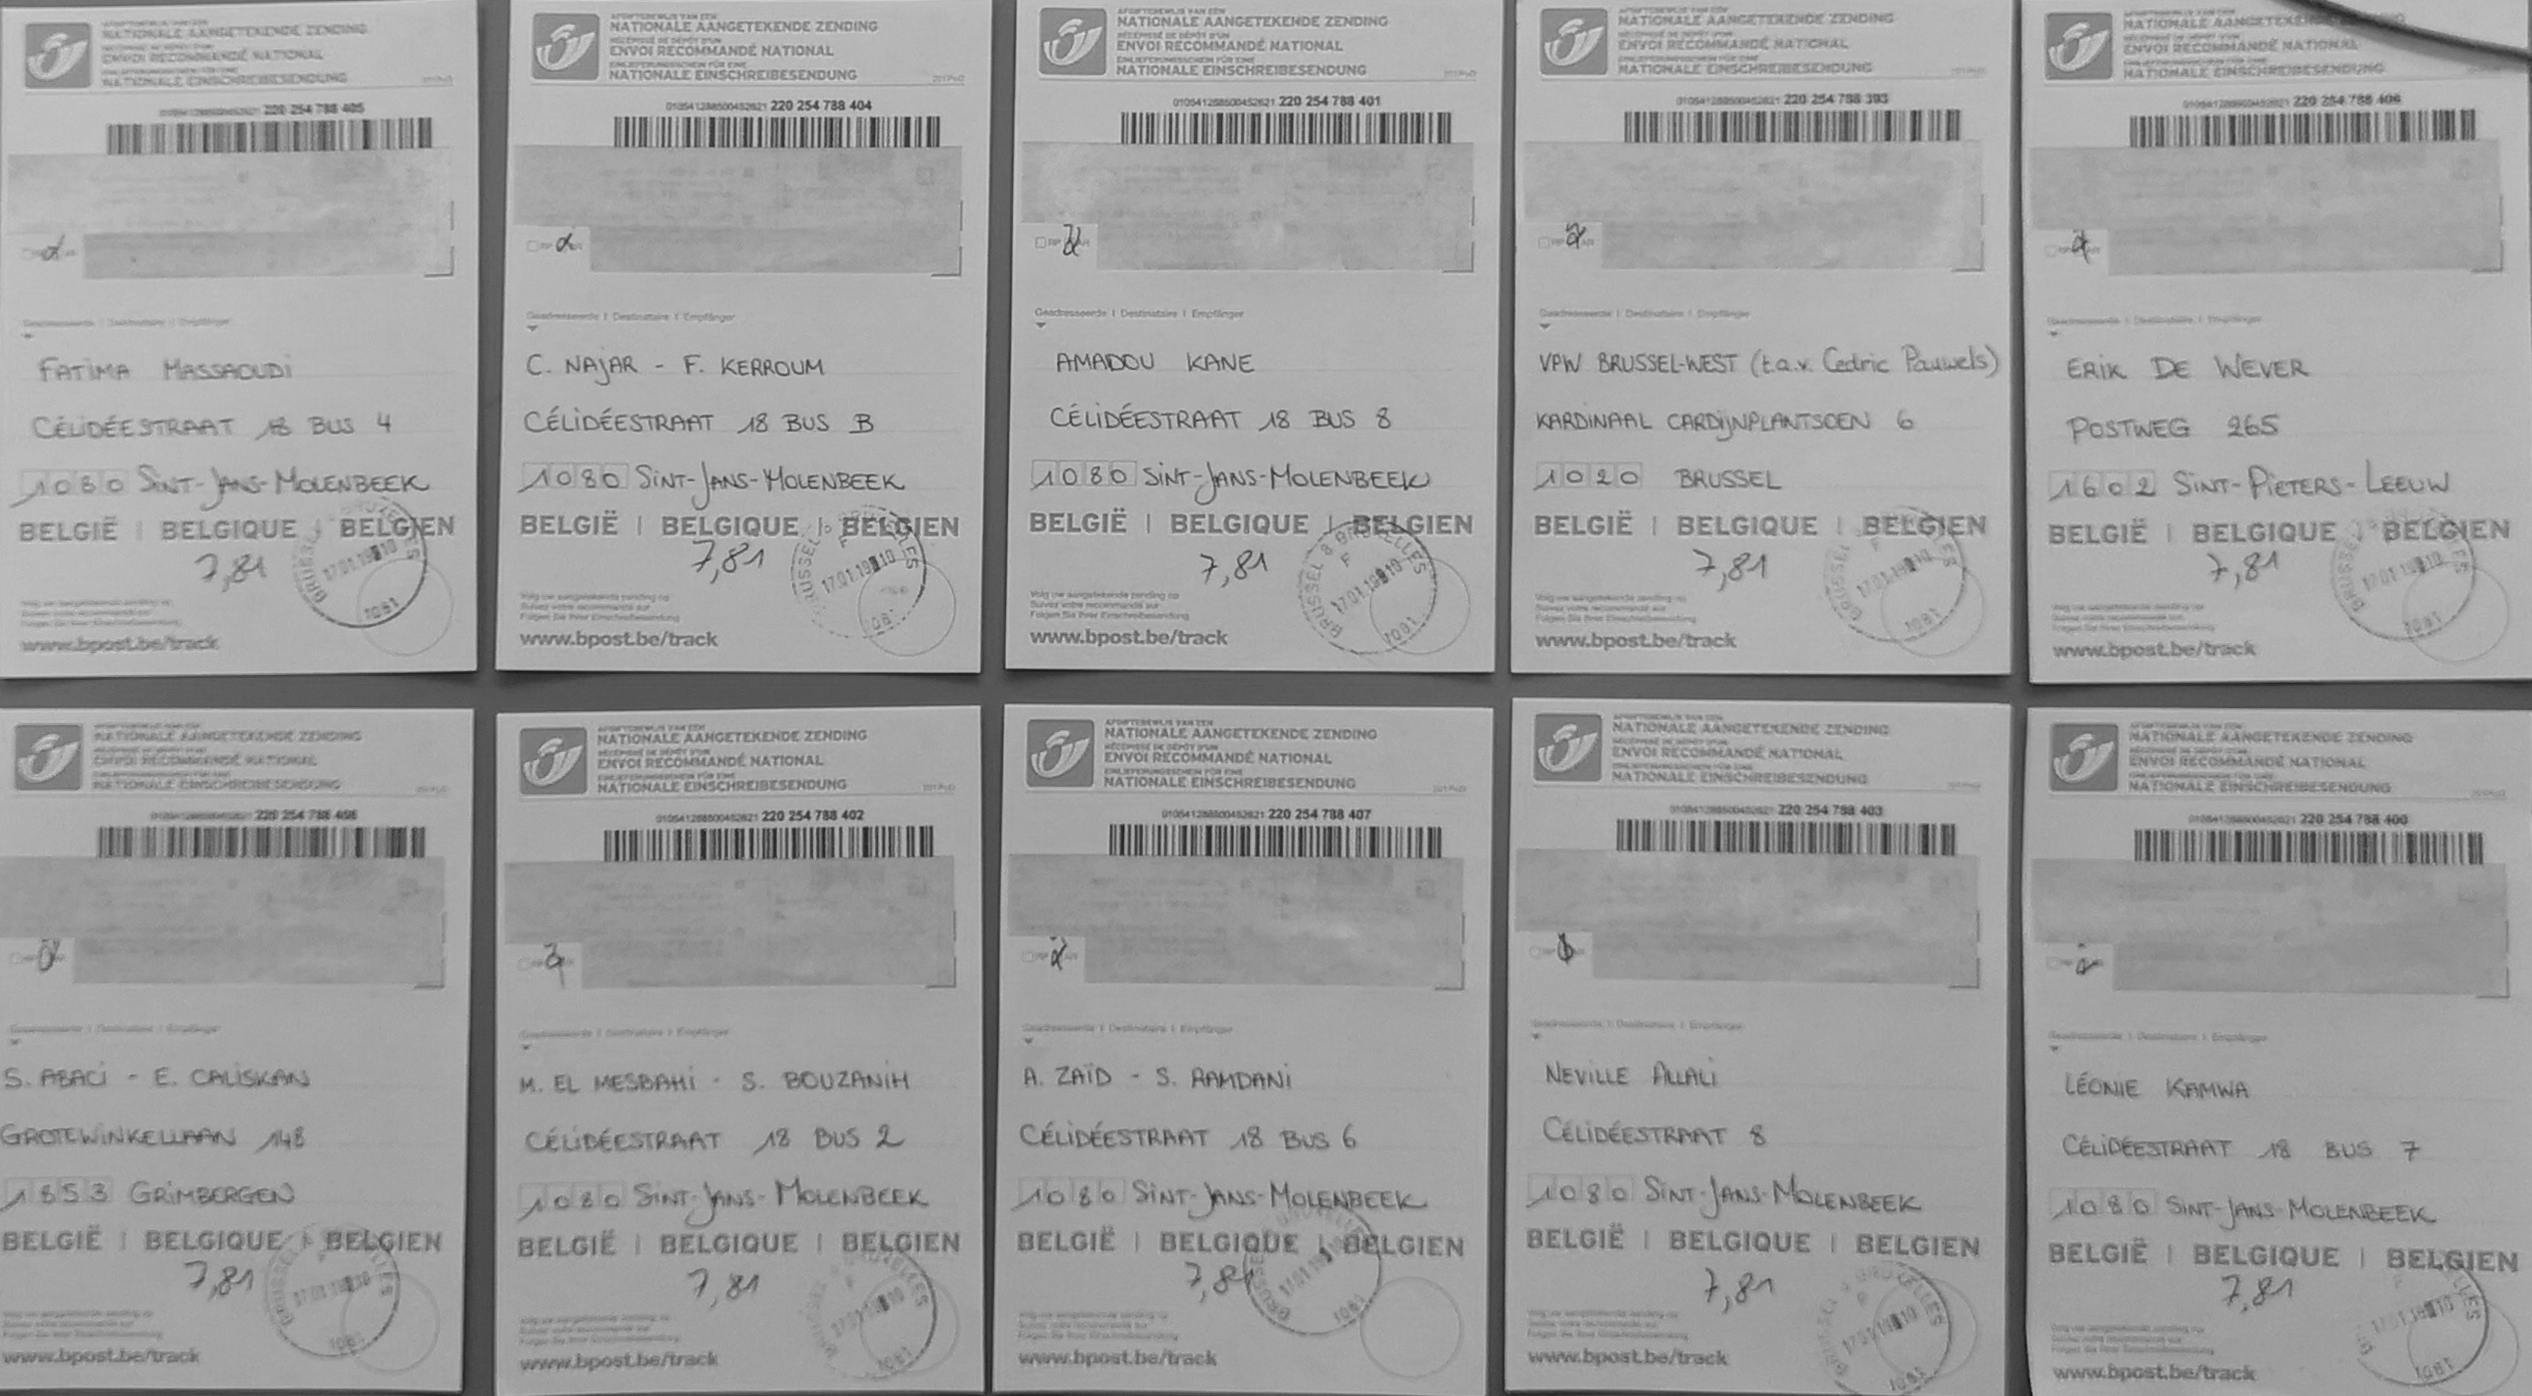 AFGIFTEBEWIJS VAN EEN
NATIONALE AANGETEKENDE ZENDING
RÉCÉPISSÉ DE DÉPÔT D'UN
ENVOI RECOMMANDÉ NATIONAL
EINLIEFERUNGSSCHEIN FÜR EINE
NATIONALE EINSCHREIBESENDUNG
220 254 788 405
Geadresseerde | Destinataire | Empfänger
FATIMA MASSAOUDI
CÉLIDÉESTRAAT 18 BUS 4
1080 SINT-JANS-MOLENBEEK
BELGIË | BELGIQUE | BELGIEN
7,81
17.01.19
1081
Volg uw aangetekende zending op
Suivez votre recommandé sur
Folgen Sie Ihrer Einschreibesendung
www.bpost.be/track
AFGIFTEBEWIJS VAN EEN
NATIONALE AANGETEKENDE ZENDING
RÉCÉPISSÉ DE DÉPÔT D'UN
ENVOI RECOMMANDÉ NATIONAL
EINLIEFERUNGSSCHEIN FÜR EINE
NATIONALE EINSCHREIBESENDUNG
220 254 788 404
Geadresseerde | Destinataire | Empfänger
C. NAJAR - F. KERROUM
CÉLIDÉESTRAAT 18 BUS B
1080 SINT-JANS-MOLENBEEK
BELGIË | BELGIQUE | BELGIEN
7,81
BRUSSEL
17.01.19
1081
Volg uw aangetekende zending op
Suivez votre recommandé sur
Folgen Sie Ihrer Einschreibesendung
www.bpost.be/track
AFGIFTEBEWIJS VAN EEN
NATIONALE AANGETEKENDE ZENDING
RÉCÉPISSÉ DE DÉPÔT D'UN
ENVOI RECOMMANDÉ NATIONAL
EINLIEFERUNGSSCHEIN FÜR EINE
NATIONALE EINSCHREIBESENDUNG
220 254 788 401
Geadresseerde | Destinataire | Empfänger
AMADOU KANE
CÉLIDÉESTRAAT 18 BUS 8
1080 SINT-JANS-MOLENBEEK
BELGIË | BELGIQUE | BELGIEN
7,81
BRUSSEL 8 BRUXELLES
F
17.01.19
1081
Volg uw aangetekende zending op
Suivez votre recommandé sur
Folgen Sie Ihrer Einschreibesendung
www.bpost.be/track
AFGIFTEBEWIJS VAN EEN
NATIONALE AANGETEKENDE ZENDING
RÉCÉPISSÉ DE DÉPÔT D'UN
ENVOI RECOMMANDÉ NATIONAL
EINLIEFERUNGSSCHEIN FÜR EINE
NATIONALE EINSCHREIBESENDUNG
220 254 788 393
Geadresseerde | Destinataire | Empfänger
VPW BRUSSEL-WEST (t.a.v. Cedric Pauwels)
KARDINAAL CARDIJNPLANTSOEN 6
1020 BRUSSEL
BELGIË | BELGIQUE | BELGIEN
7,81
17.01.19
1081
Volg uw aangetekende zending op
Suivez votre recommandé sur
Folgen Sie Ihrer Einschreibesendung
www.bpost.be/track
NATIONALE AANGETEKENDE ZENDING
RÉCÉPISSÉ DE DÉPÔT D'UN
ENVOI RECOMMANDÉ NATIONAL
EINLIEFERUNGSSCHEIN FÜR EINE
NATIONALE EINSCHREIBESENDUNG
220 254 788
Geadresseerde | Destinataire | Empfänger
ERIK DE WEVER
POSTWEG 265
1602 SINT-PIETERS-LEEUW
BELGIË | BELGIQUE | BELGIEN
7,81
17.01.19
1081
Volg uw aangetekende zending op
Suivez votre recommandé sur
Folgen Sie Ihrer Einschreibesendung
www.bpost.be/track
AFGIFTEBEWIJS VAN EEN
NATIONALE AANGETEKENDE ZENDING
RÉCÉPISSÉ DE DÉPÔT D'UN
ENVOI RECOMMANDÉ NATIONAL
EINLIEFERUNGSSCHEIN FÜR EINE
NATIONALE EINSCHREIBESENDUNG
220 254 788
Geadresseerde | Destinataire | Empfänger
S. ABACI - E. CALISKAN
GROTEWINKELLAAN 148
1853 GRIMBERGEN
BELGIË | BELGIQUE | BELGIEN
7,81
17.01.19
1081
Volg uw aangetekende zending op
Suivez votre recommandé sur
Folgen Sie Ihrer Einschreibesendung
www.bpost.be/track
AFGIFTEBEWIJS VAN EEN
NATIONALE AANGETEKENDE ZENDING
RÉCÉPISSÉ DE DÉPÔT D'UN
ENVOI RECOMMANDÉ NATIONAL
EINLIEFERUNGSSCHEIN FÜR EINE
NATIONALE EINSCHREIBESENDUNG
220 254 788 402
Geadresseerde | Destinataire | Empfänger
M. EL MESBAHI - S. BOUZANIH
CÉLIDÉESTRAAT 18 BUS 2
1080 SINT-JANS-MOLENBEEK
BELGIË | BELGIQUE | BELGIEN
7,81
17.01.19
1081
Volg uw aangetekende zending op
Suivez votre recommandé sur
Folgen Sie Ihrer Einschreibesendung
www.bpost.be/track
AFGIFTEBEWIJS VAN EEN
NATIONALE AANGETEKENDE ZENDING
RÉCÉPISSÉ DE DÉPÔT D'UN
ENVOI RECOMMANDÉ NATIONAL
EINLIEFERUNGSSCHEIN FÜR EINE
NATIONALE EINSCHREIBESENDUNG
220 254 788 407
Geadresseerde | Destinataire | Empfänger
A. ZAÏD - S. RAMDANI
CÉLIDÉESTRAAT 18 BUS 6
1080 SINT-JANS-MOLENBEEK
BELGIË | BELGIQUE | BELGIEN
7,81
1081
Volg uw aangetekende zending op
Suivez votre recommandé sur
Folgen Sie Ihrer Einschreibesendung
www.bpost.be/track
AFGIFTEBEWIJS VAN EEN
NATIONALE AANGETEKENDE ZENDING
RÉCÉPISSÉ DE DÉPÔT D'UN
ENVOI RECOMMANDÉ NATIONAL
EINLIEFERUNGSSCHEIN FÜR EINE
NATIONALE EINSCHREIBESENDUNG
220 254 788 403
Geadresseerde | Destinataire | Empfänger
NEVILLE ALLALI
CÉLIDÉESTRAAT 8
1080 SINT-JANS-MOLENBEEK
BELGIË | BELGIQUE | BELGIEN
7,81
17.01.19
1081
Volg uw aangetekende zending op
Suivez votre recommandé sur
Folgen Sie Ihrer Einschreibesendung
www.bpost.be/track
AFGIFTEBEWIJS VAN EEN
NATIONALE AANGETEKENDE ZENDING
RÉCÉPISSÉ DE DÉPÔT D'UN
ENVOI RECOMMANDÉ NATIONAL
EINLIEFERUNGSSCHEIN FÜR EINE
NATIONALE EINSCHREIBESENDUNG
220 254 788 400
Geadresseerde | Destinataire | Empfänger
LÉONIE KAMWA
CÉLIDÉESTRAAT 18 BUS 7
1080 SINT-JANS-MOLENBEEK
BELGIË | BELGIQUE | BELGIEN
7,81
17.01.19
1081
Volg uw aangetekende zending op
Suivez votre recommandé sur
Folgen Sie Ihrer Einschreibesendung
www.bpost.be/track